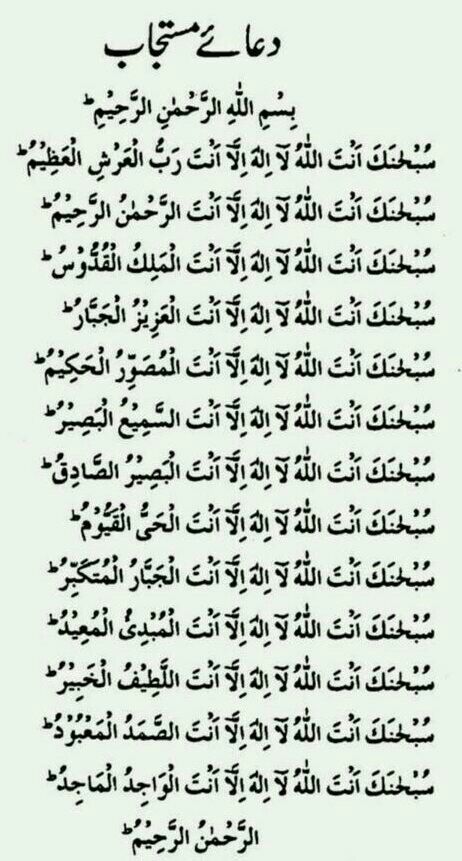 دعائے مستجاب
بِسْمِ اللهِ الرَّحْمٰنِ الرَّحِيْمِ ؕ
سُبْحٰنَكَ اَنْتَ اللّٰهُ لَآ اِلٰهَ اِلَّآ اَنْتَ رَبُّ الْعَرْشِ الْعَظِيْمُ ؕ
سُبْحٰنَكَ اَنْتَ اللّٰهُ لَآ اِلٰهَ اِلَّآ اَنْتَ الرَّحْمٰنُ الرَّحِيْمُ ؕ
سُبْحٰنَكَ اَنْتَ اللّٰهُ لَآ اِلٰهَ اِلَّآ اَنْتَ الْمَلِكُ الْقُدُّوْسُ ؕ
سُبْحٰنَكَ اَنْتَ اللّٰهُ لَآ اِلٰهَ اِلَّآ اَنْتَ الْعَزِيْزُ الْجَبَّارُ ؕ
سُبْحٰنَكَ اَنْتَ اللّٰهُ لَآ اِلٰهَ اِلَّآ اَنْتَ الْمُصَوِّرُ الْحَكِيْمُ ؕ
سُبْحٰنَكَ اَنْتَ اللّٰهُ لَآ اِلٰهَ اِلَّآ اَنْتَ السَّمِيْعُ الْبَصِيْرُ ؕ
سُبْحٰنَكَ اَنْتَ اللّٰهُ لَآ اِلٰهَ اِلَّآ اَنْتَ الْبَصِيْرُ الصَّادِقُ ؕ
سُبْحٰنَكَ اَنْتَ اللّٰهُ لَآ اِلٰهَ اِلَّآ اَنْتَ الْحَىُّ الْقَيُّوْمُ ؕ
سُبْحٰنَكَ اَنْتَ اللّٰهُ لَآ اِلٰهَ اِلَّآ اَنْتَ الْجَبَّارُ الْمُتَكَبِّرُ ؕ
سُبْحٰنَكَ اَنْتَ اللّٰهُ لَآ اِلٰهَ اِلَّآ اَنْتَ الْمُبْدِئُ الْمُعِيْدُ ؕ
سُبْحٰنَكَ اَنْتَ اللّٰهُ لَآ اِلٰهَ اِلَّآ اَنْتَ اللَّطِيْفُ الْخَبِيْرُ ؕ
سُبْحٰنَكَ اَنْتَ اللّٰهُ لَآ اِلٰهَ اِلَّآ اَنْتَ الصَّمَدُ الْمَعْبُوْدُ ؕ
سُبْحٰنَكَ اَنْتَ اللّٰهُ لَآ اِلٰهَ اِلَّآ اَنْتَ الْوَاجِدُ الْمَاجِدُ ؕ
الرَّحْمٰنُ الرَّحِيْمُ ؕ